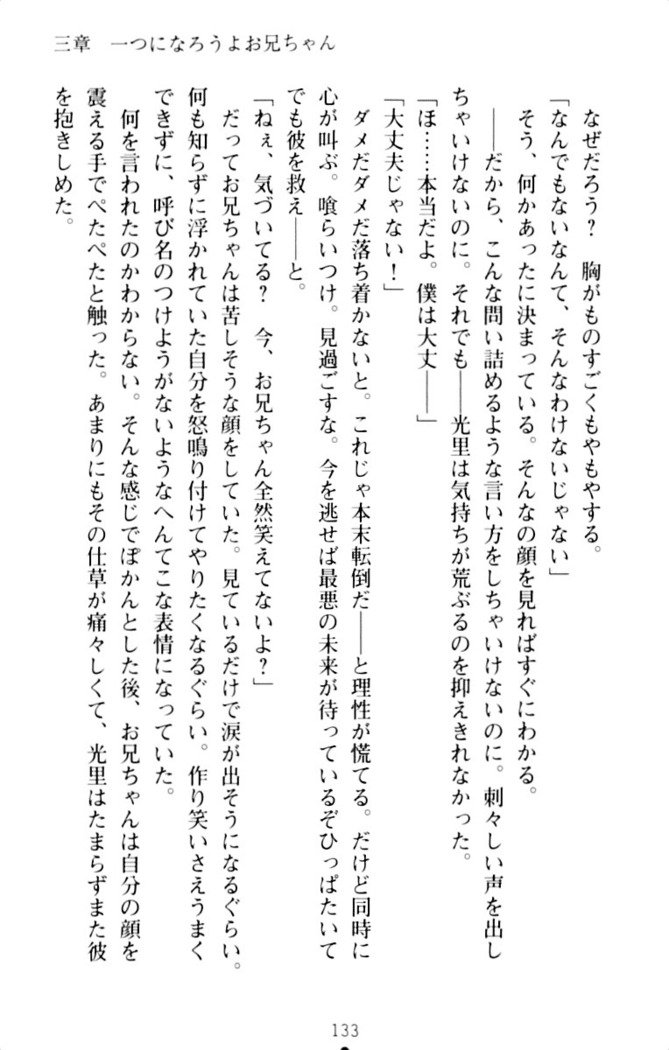 三章　一つになろうよお兄ちゃん
なぜだろう？　胸がものすごくもやもやする。
「なんでもないなんて、そんなわけないじゃない」
そう、何かあったに決まっている。そんなの顔を見ればすぐにわかる。
――だから、こんな問い詰めるような言い方をしちゃいけないのに。刺々しい声を出し
ちゃいけないのに。それでも――光里は気持ちが荒ぶるのを抑えきれなかった。
「ほ……本当だよ。僕は大丈――」
「大丈夫じゃない！」
ダメだダメだ落ち着かないと。これじゃ本末転倒だ――と理性が慌てる。だけど同時に
心が叫ぶ。喰らいつけ。見過ごすな。今を逃せば最悪の未来が待っているぞひっぱたいて
でも彼を救え――と。
「ねぇ、気づいてる？　今、お兄ちゃん全然笑えてないよ？」
だってお兄ちゃんは苦しそうな顔をしていた。見ているだけで涙が出そうになるぐらい。
何も知らずに浮かれていた自分を怒鳴り付けてやりたくなるぐらい。作り笑いさえうまく
できずに、呼び名のつけようがないようなへんてこな表情になっていた。
何を言われたのかわからない。そんな感じでぽかんとした後、お兄ちゃんは自分の顔を
震える手でぺたぺたと触った。あまりにもその仕草が痛々しくて、光里はたまらずまた彼
を抱きしめた。
133